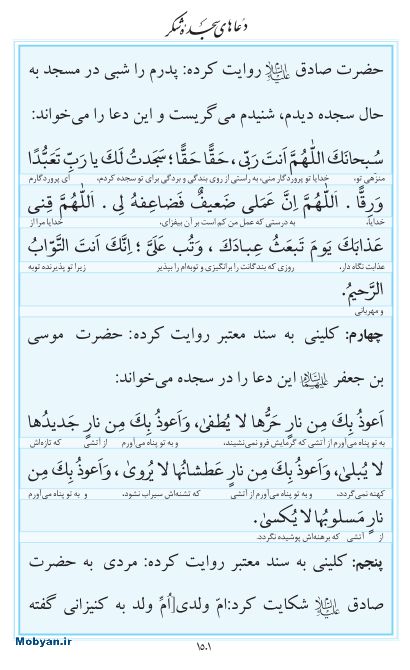 دعاهای سجدهٔ شکر
حضرت صادق علیه‌السلام روایت کرده: پدرم را شبی در مسجد به
حال سجده دیدم، شنیدم می‌گریست و این دعا را می‌خواند:
سُبحانَكَ اللّٰهُمَّ اَنتَ رَبّی، حَقًّا حَقًّا؛ سَجَدتُ لَكَ یا رَبِّ تَعَبُّدًا
منزّهی تو، خدایا تو پروردگار منی، به راستی از روی بندگی و بردگی برای تو سجده کردم، ای پروردگارم
وَرِقًّا . اَللّٰهُمَّ اِنَّ عَمَلی ضَعیفٌ فَضاعِفهُ لِی . اَللّٰهُمَّ قِنی
خدایا، به درستی که عمل من کم است بر آن بیفزای، خدایا مرا از
عَذابَكَ یَومَ تَبعَثُ عِبادَكَ ، وَتُب عَلَیَّ؛ اِنَّكَ اَنتَ التَّوّابُ
عذابت نگاه دار، روزی که بندگانت را برانگیزی و توبه‌ام را بپذیر زیرا تو پذیرنده توبه
الرَّحیمُ.
و مهربانی
چهارم: کلینی به سند معتبر روایت کرده: حضرت موسی
بن جعفر علیهماالسلام این دعا را در سجده می‌خواند:
اَعوذُ بِكَ مِن نارٍ حَرُّها لا یُطفیٰ، وَاَعوذُ بِكَ مِن نارٍ جَدیدُها
به تو پناه می‌آورم از آتشی که گرمایش فرو نمی‌نشیند، و به تو پناه می‌آورم از آتشی که تازه‌اش
لا یُبلیٰ، وَاَعوذُ بِكَ مِن نارٍ عَطشانُها لا یُرویٰ، وَاَعوذُ بِكَ مِن
کهنه نمی‌گردد، و به تو پناه می‌آورم از آتشی که تشنه‌اش سیراب نشود، و به تو پناه می‌آورم
نارٍ مَسلوبُها لا یُکسیٰ.
از آتشی که برهنه‌اش پوشیده نگردد.
پنجم: کلینی به سند معتبر روایت کرده: مردی به حضرت
صادق علیه‌السلام شکایت کرد:امّ ولدی[اُمّ ولد به کنیزانی گفته
Mobyan.ir
۱۵۰۱